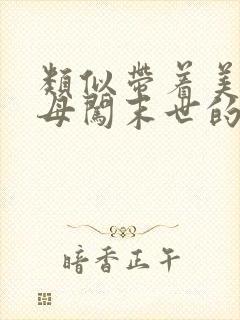 類似帶着美
母闖末世的
暗香正午